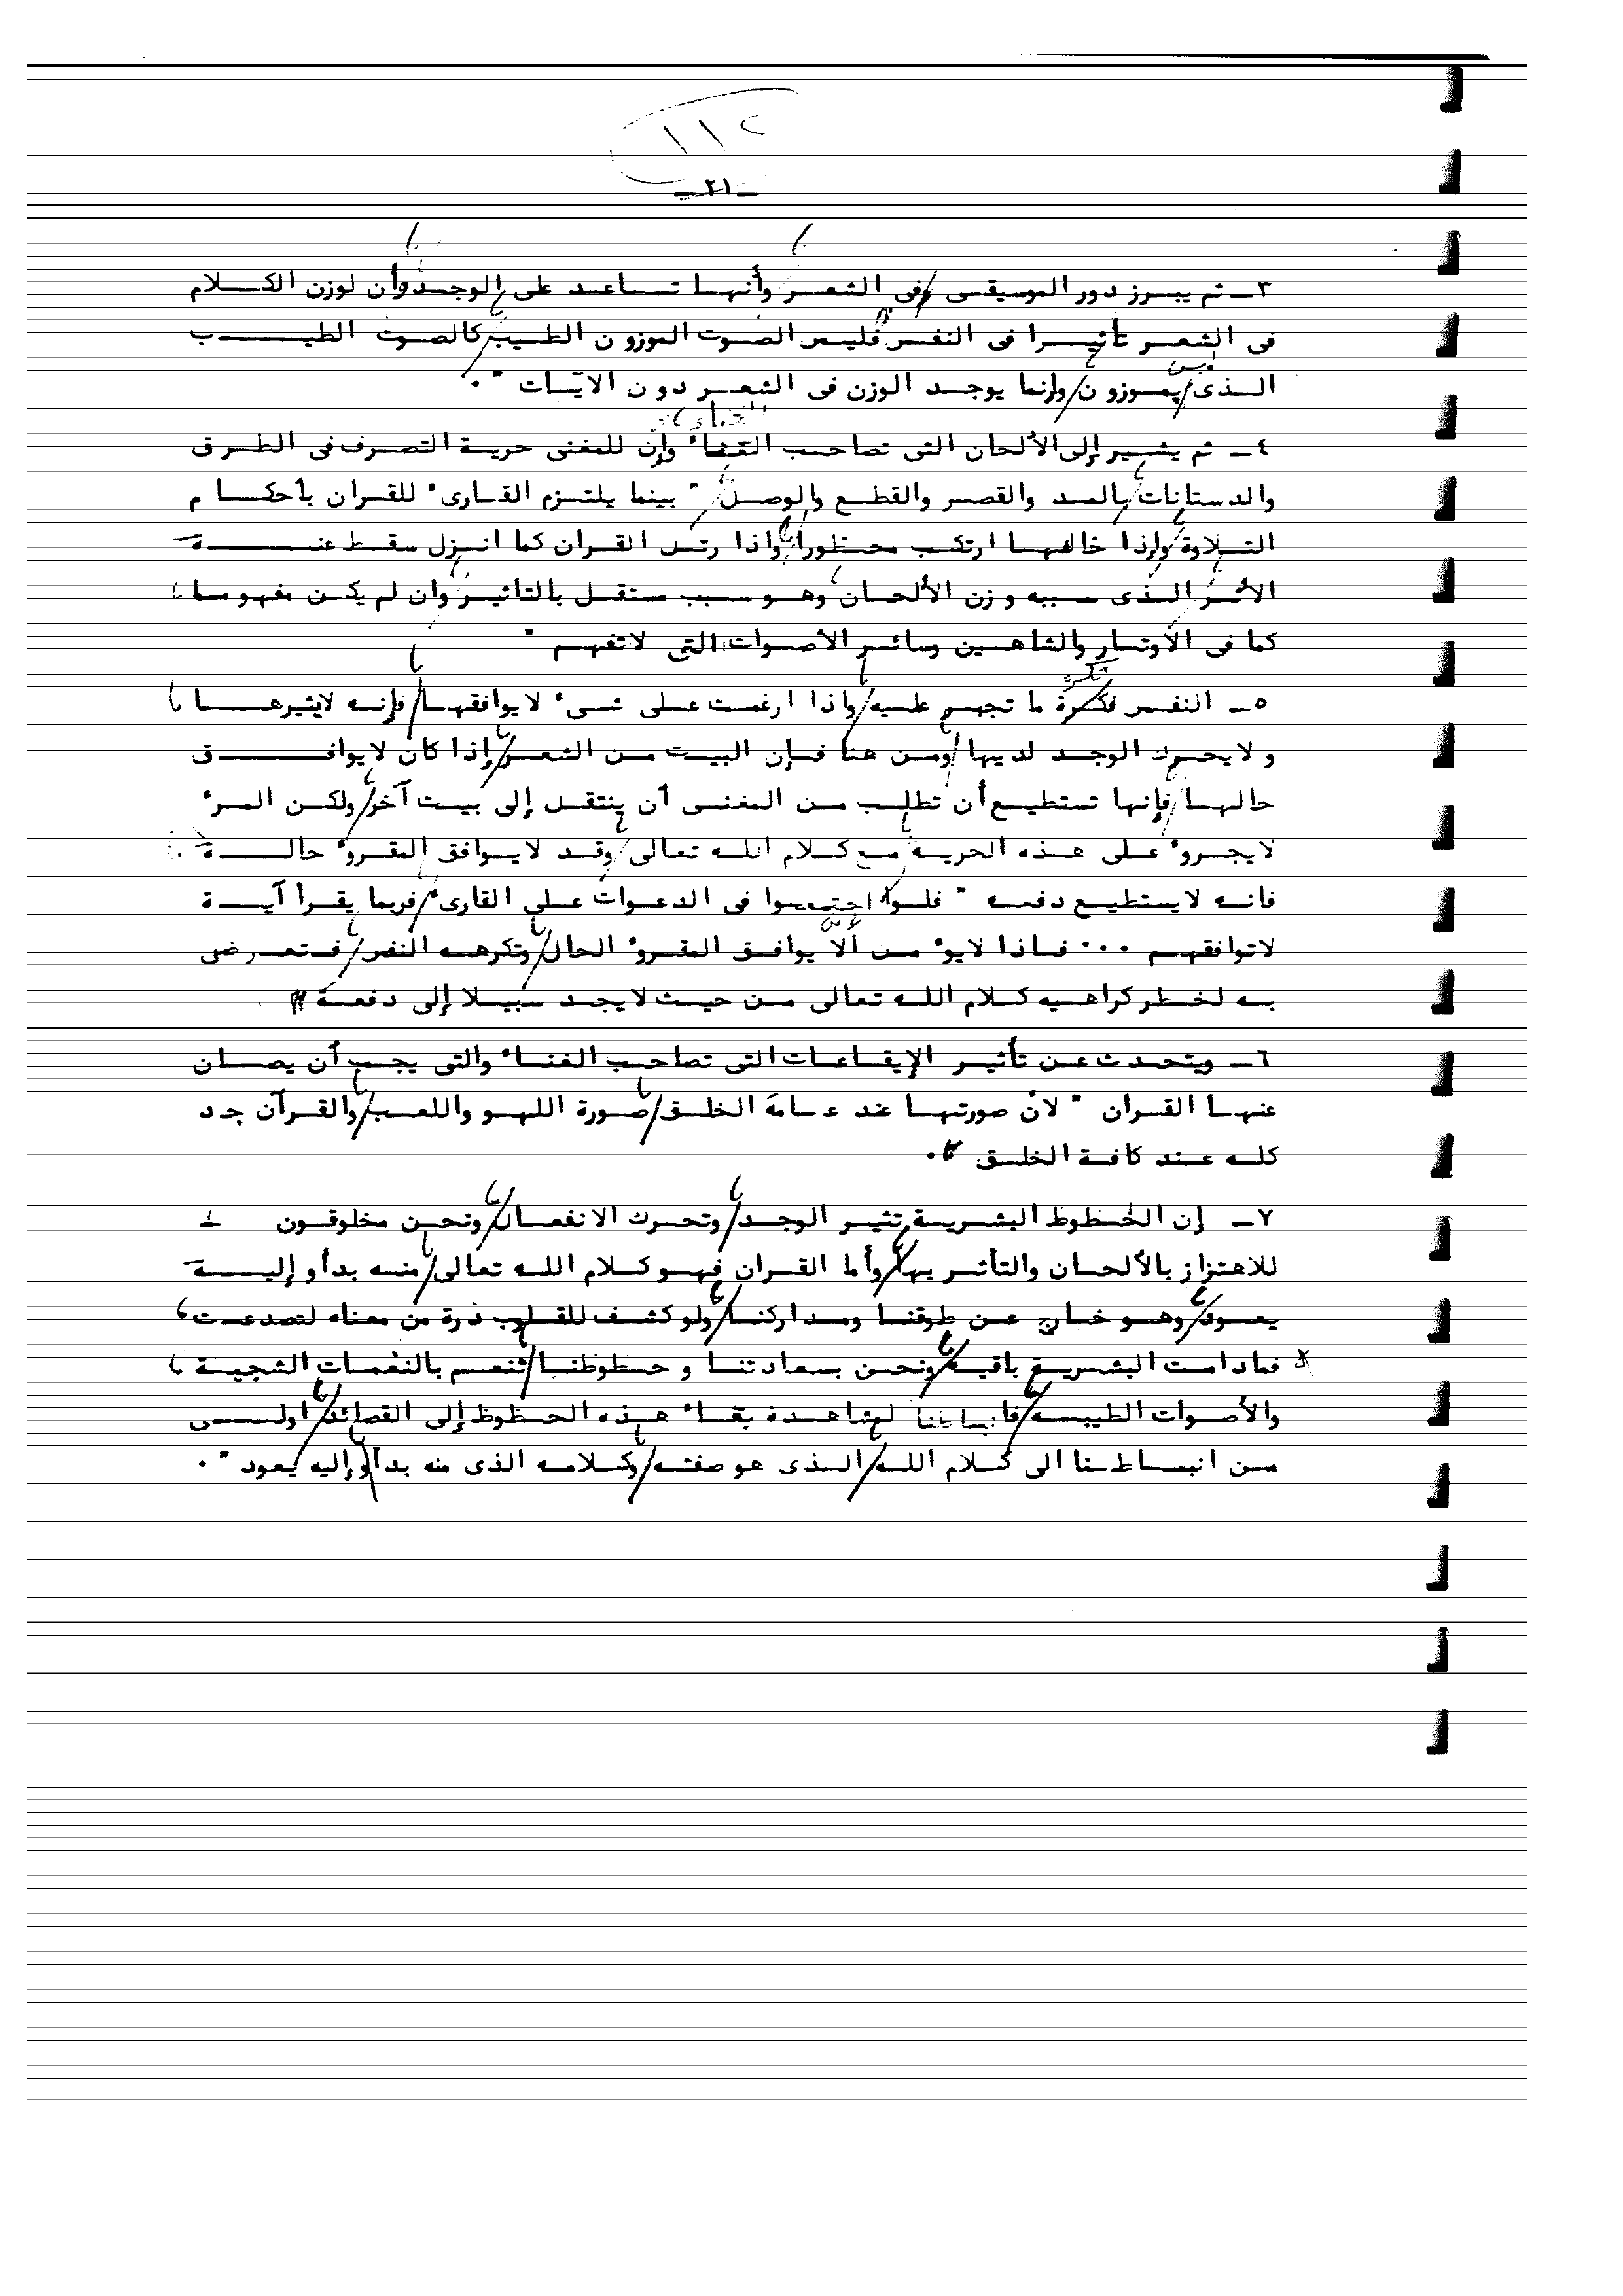 ١١
ـ ٢١ ـ
٣ـ ثم يبرز دور الموسيقى فى الشعر وأنها تساعد على الوجد وأن لوزن الكلام
فى الشعر تأثيرا فى النفس فليس الصوت الموزون الطيب كالصوت الطيب
الذى ليس بموزون وإنما يوجد الوزن فى الشعر دون الايات " ٠
٤ـ ثم يشير إلى الألحان التى تصاحب الغناء وإن للمغنى حرية التصرف فى الطرق
والدستانات بالمد والقصر والقطع والوصل " بينما يلتزم القارىء للقران بأحكام
التلاوة وإذا خالفها ارتكب محظورا واذا رتل القران كما انزل سقط عنه
الأثر الذى سببه وزن الألحان وهو سبب مستقل بالتاثير وان لم يكن مفهوما
كما فى الأوتار والشاهين وسائر الأصوات التى لاتفهم "
٥ـ النفس تكره ما تجبر عليه واذا ارغمت على شىء لايوافقها فإنه لايثيرها
ولايحرك الوجد لديها ومن هنا فإن البيت من الشعر إذا كان لايوافق
حالها فإنها تستطيع أن تطلب من المغنى أن ينتقل إلى بيت آخر ولكن المرء
لايجروء على هذه الحرية مع كلام الله تعالى وقد لايوافق المقروء حاله
فانه لايستطيع دفعه " فلو اجتمعوا فى الدعوات على القارىء فربما يقرأ آية
لاتوافقهم ٠٠٠ فاذا لايؤمن ألا يوافق المقروء الحال وتكرهه النفس فتعرض
به لخطر كراهيه كلام الله تعالى من حيث لايجد سبيلا إلى دفعة "
٦ـ ويتحدث عن تأثير الإيقاعات التى تصاحب الغناء والتى يجب أن يصان
عنها القران " لأن صورتها عند عامة الخلق صورة اللهو واللعب والقرآن جد
كله عند كافة الخلق " ٠
٧ـ إن الحظوظ البشرية تثير الوجد وتحرك الانفعال ونحن مخلوقون
للاهتزاز بالألحان والتأثر بها وأما القران فهو كلام الله تعالى منه بدأ و إلية
يعود وهو خارج عن طوقنا ومداركنا ولو كشف للقلوب ذرة من معناه لتصدعت
فمادامت البشرية باقيه ونحن بسعادتنا و حظوظنا تنعم بالنغمات الشجية
والأصوات الطيبه فانبساطنا لمشاهدة بقاء هذه الحظوظ إلى القصائد اولى
من انبساطنا الى كلام الله الذى هو صفته وكلامه الذى منه بدأ وإليه يعود " ٠